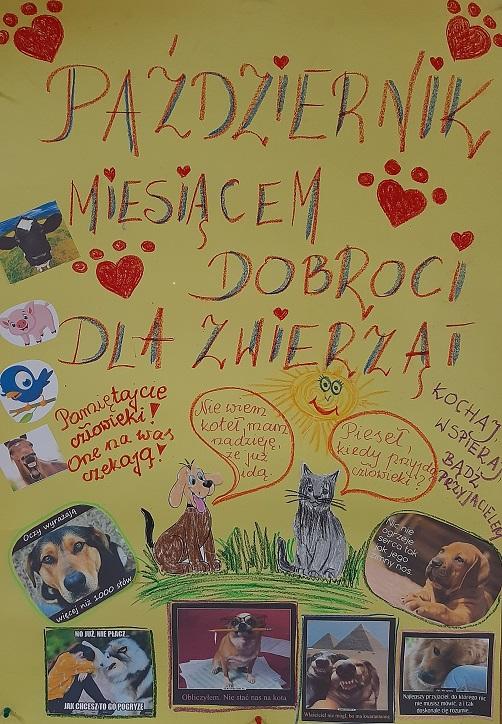 PAŹDZIERNIK
MIESIĄCEM
DOBROCI
DLA ZWIERZĄT
Pamiętajcie
człowieki!
One na was
czekają!
Nie wiem
koteł, mam
nadzieję,
że już
idą.
Pieseł,
kiedy przyjdą
człowieki?
KOCHAJ
WSPIERAJ
BĄDŹ
PRZYJACIELEM
Oczy wyrażają
więcej niż 1000 słów
Nic nie
ogrzeje
serca tak
jak jego
zimny nos.
NO JUŻ, NIE PŁACZ...
JAK CHCESZ TO GO POGRYZĘ
Obliczyłem. Nie stać nas na kota
Właściciel nie mógł, bo ma kwarantannę
Najlepszy przyjaciel, do którego nic
nie musisz mówić, a i tak
doskonale cię rozumie...